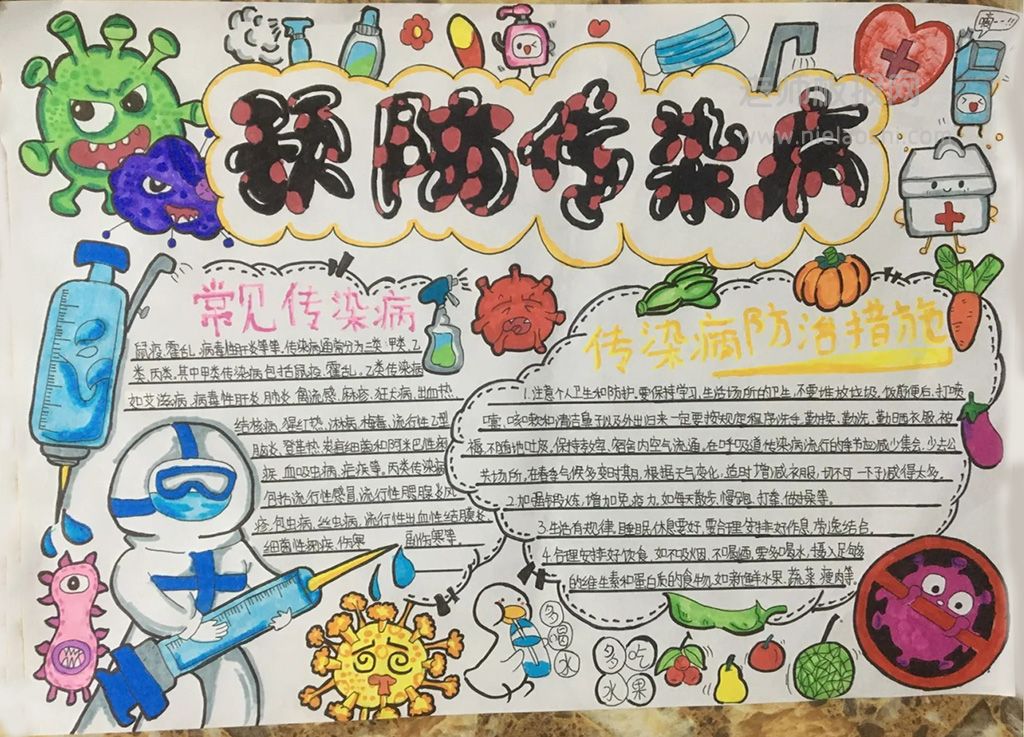 预防传染病
嘀--!!
老师板报网
www.njelaoshi.com
常见传染病
鼠疫、霍乱、病毒性肝炎等等,传染病通常分为三类:甲类、乙
类、丙类。其中甲类传染病包括鼠疫、霍乱。乙类传染病
如艾滋病、病毒性肝炎、肺炎、禽流感、麻疹、狂犬病、出血热、
结核病、猩红热、淋病、梅毒、流行性乙型
脑炎、登革热、炭疽、细菌和阿米巴性痢
疾、血吸虫病、疟疾等。丙类传染病
包括流行性感冒、流行性腮腺炎、风
疹、包虫病、丝虫病、流行性出血性结膜炎
细菌性痢疾、伤寒 副伤寒等。
传染病防治措施
1.注意个人卫生和防护,要保持学习、生活场所的卫生,不要堆放垃圾。饭前便后、打喷
嚏、咳嗽和清洁鼻子以及外出归来一定要按规定程序洗手,勤换、勤洗、勤晒衣服、被
褥,不随地吐痰,保持教室、宿舍内空气流通。在呼吸道传染病流行的季节加减少集会,少去公
共场所,在春季气候多变时期,根据天气变化,适时增减衣服,切不可一下子减得太多。
2.加强锻炼,增加免疫力,如每天散步、慢跑、打拳、做操等。
3.生活有规律,睡眠、休息要好,要合理安排好作息,劳逸结合。
4.合理安排好饮食,如不吸烟,不喝酒,要多喝水,摄入足够
的维生素和蛋白质的食物,如新鲜水果、蔬菜、瘦肉等。
多喝水
多吃
水果